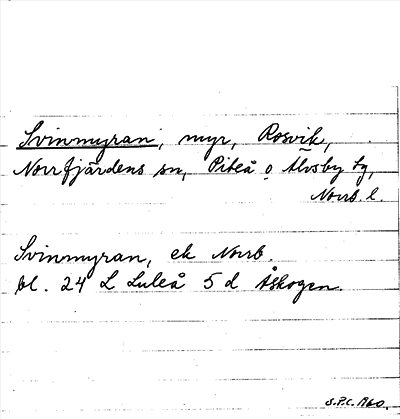 Svinmyran, myr, Rosvik,
Norrfjärdens sn, Piteå o Älvsby tg,
Norrb. l.
Svinmyran, ek Norrb.
bl. 24 L Luleå 5 d Åskogen.
S.P.C. 1960.